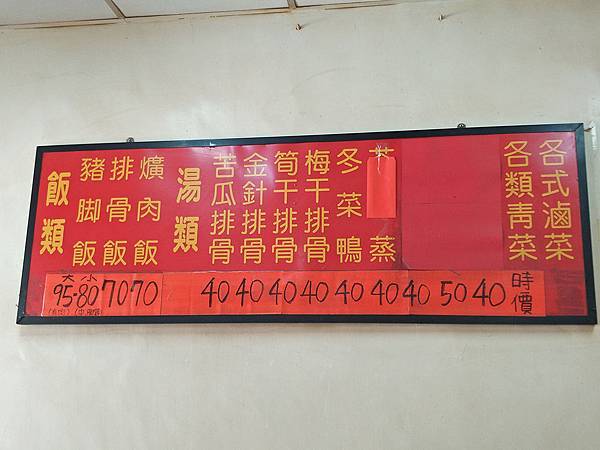 飯類
豬脚飯
排骨飯
爌肉飯
湯類
苦瓜排骨
金針排骨
筍干排骨
梅干排骨
冬菜鴨
蒸
各類青菜
各式滷菜
大 小
95-80 70 70 40 40 40 40 40 40 40 50 40 時價